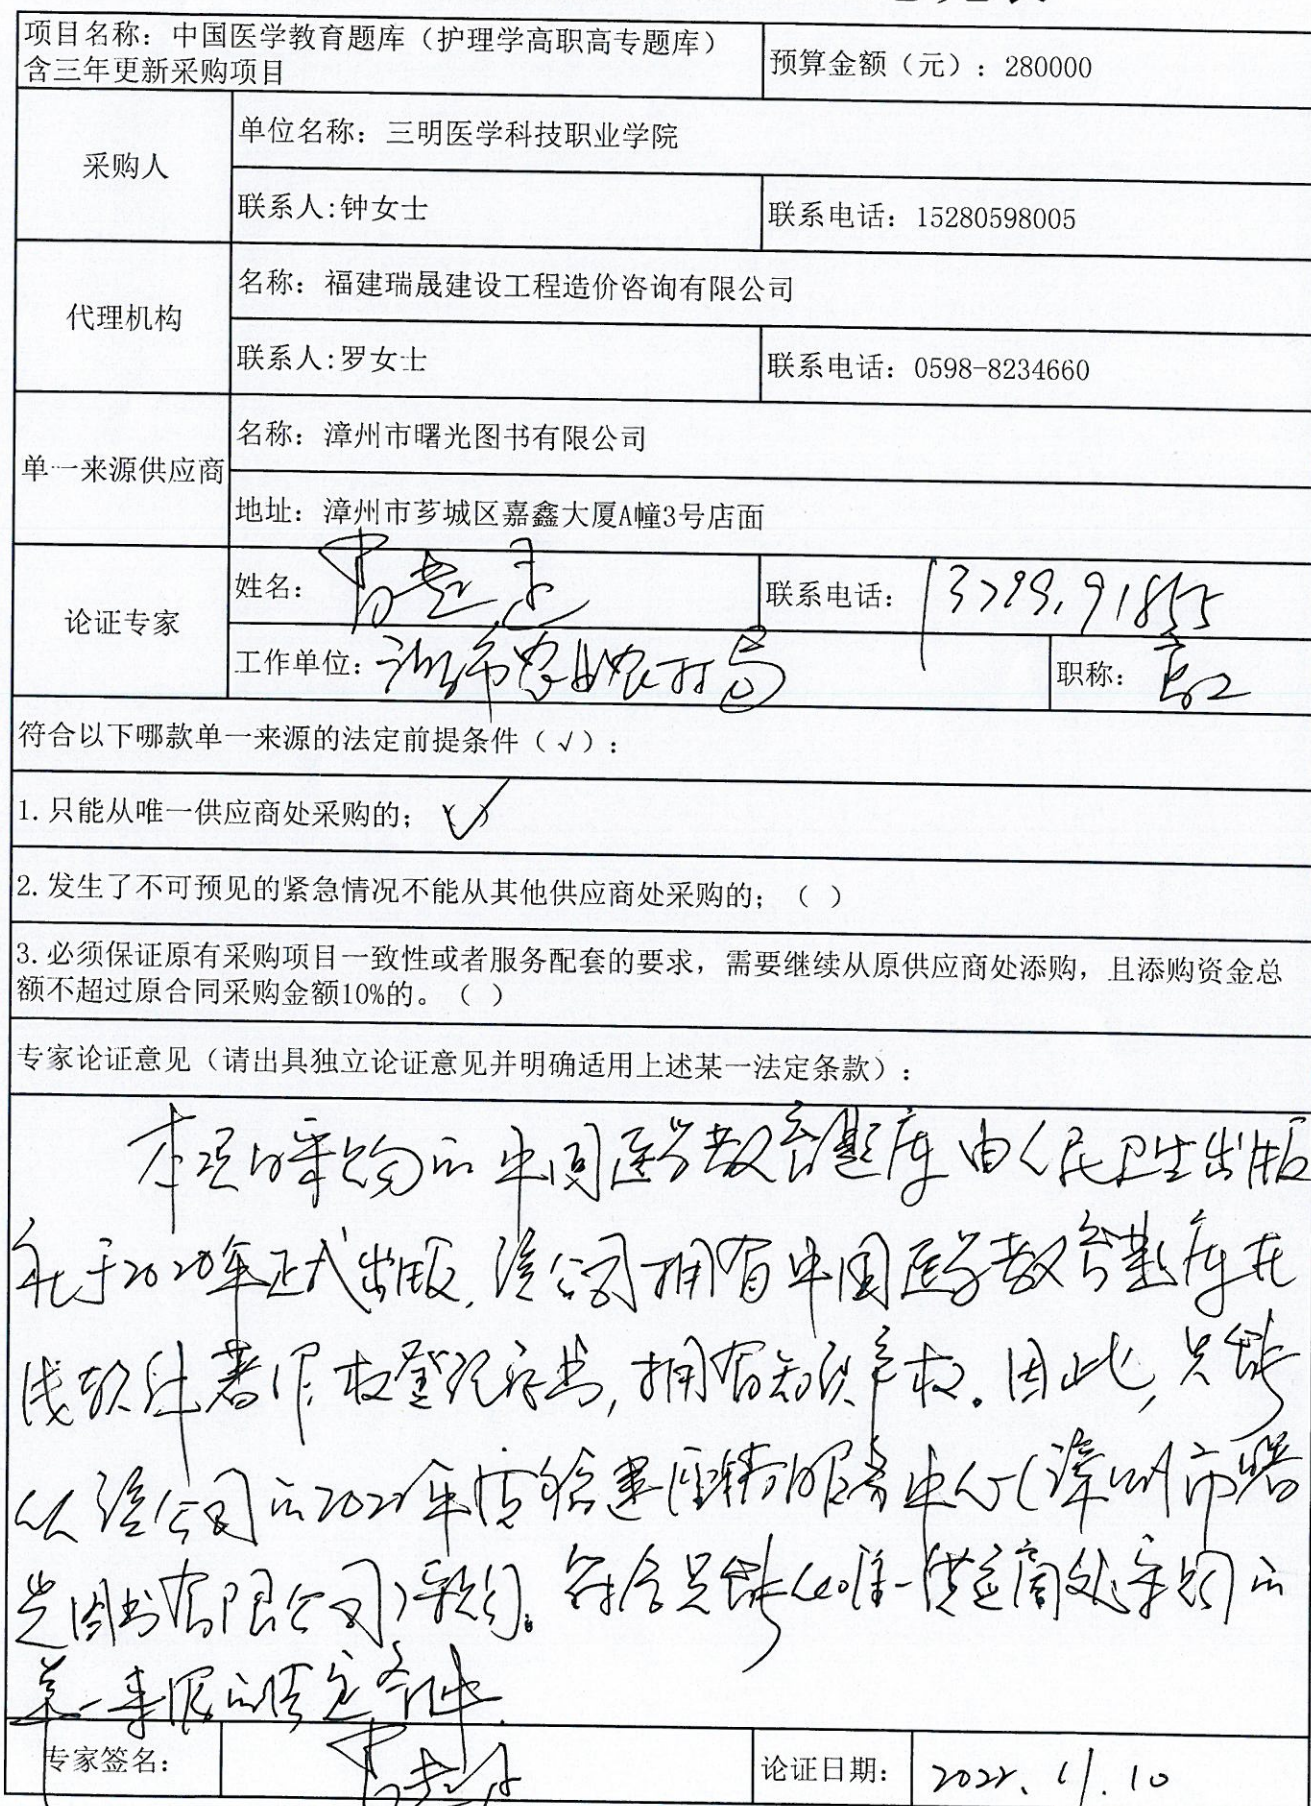 项目名称：中国医学教育题库（护理学高职高专题库）
含三年更新采购项目
预算金额（元）：280000
采购人
单位名称：三明医学科技职业学院
联系人:钟女士
联系电话：15280598005
代理机构
名称：福建瑞晟建设工程造价咨询有限公司
联系人:罗女士
联系电话：0598-8234660
单一来源供应商
名称：漳州市曙光图书有限公司
地址：漳州市芗城区嘉鑫大厦A幢3号店面
论证专家
姓名：
联系电话：
工作单位：市农业农村局
职称：高工
符合以下哪款单一来源的法定前提条件（√）：
1.只能从唯一供应商处采购的；（√）
2.发生了不可预见的紧急情况不能从其他供应商处采购的；（ ）
3.必须保证原有采购项目一致性或者服务配套的要求，需要继续从原供应商处添购，且添购资金总
额不超过原合同采购金额10%的。（ ）
专家论证意见（请出具独立论证意见并明确适用上述某一法定条款）：
本项目采购的中国医学教育题库由人民卫生出版
社于2020年正式出版，该公司拥有中国医学教育题库在
线软件著作权登记证书，拥有知识产权。因此，只能
从该公司的2022年度福建区域服务中心（漳州市曙
光图书有限公司）采购。符合只能从唯一供应商处采购的
单一来源的法定条件。
专家签名：
论证日期：2022.11.10